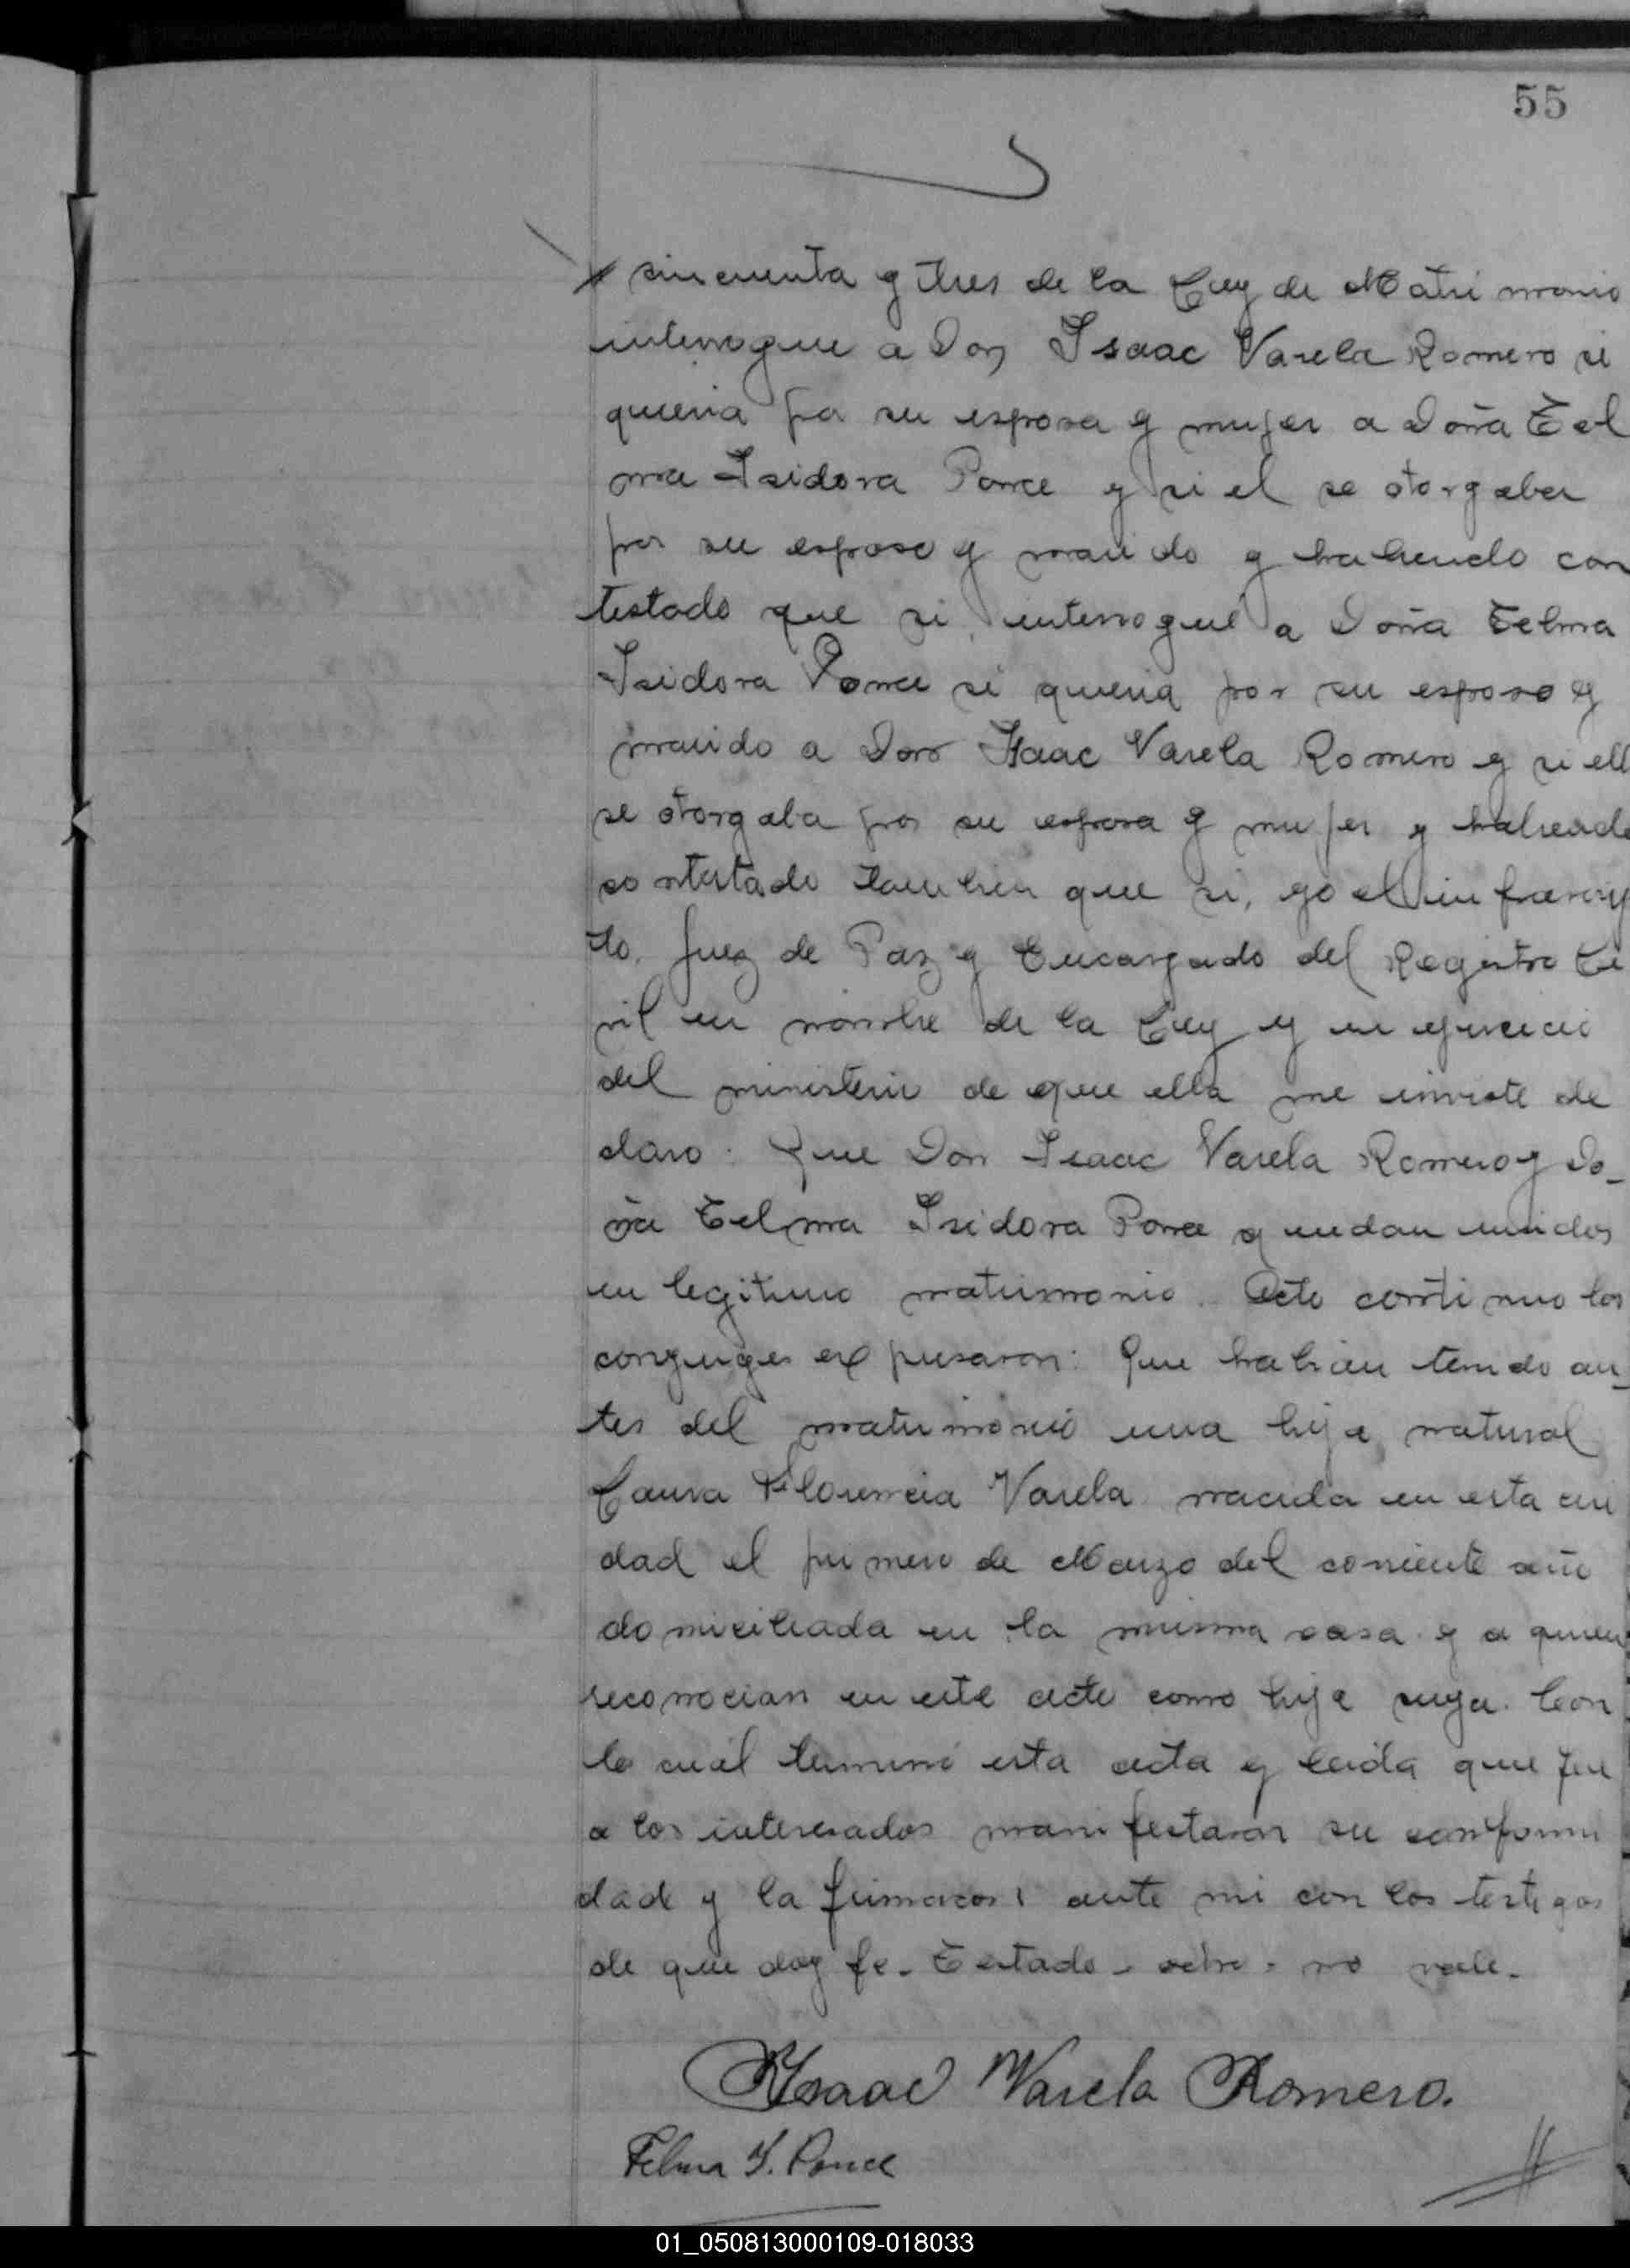 55
sincuenta y tres de la Ley de Matrimonio
interrogue a Don Isaac Varela Romero si
queria por su esposa y mujer a Doña Tel
ma Isidora Ponce y si el se otorgaba
por su esposo y marido y habiendo con
testado que si, interrogué a Doña Telma
Isidora Ponce si queria por su esposo y
marido a Don Isaac Varela Romero y si ell
se otorgaba por su esposa y mujer y habiendo
contestado tambien que si, yo el infrascrip
to, Juez de Paz y Encargado del Registro Ci
vil en nombre de la Ley y en ejercicio
del ministerio de que ella me inviste de
claro: Que Don Isaac Varela Romero y Do-
ña Telma Isidora Ponce quedan unidos
en legitimo matrimonio. Acto continuo los
conyuges expusaron: Que habian tenido an-
tes del matrimonio una hija natural
Laura Florencia Varela nacida en esta ciu
dad el primero de Marzo del corriente año
domiciliada en la misma casa y a quien
reconocian en este acto como hija suya. Con
lo cual terminé esta acta y leida que fue
a los interesados manifestaron su conformi
dad y la firmaron ante mi con los testigos
de que doy fe. Testado - no vale.
Isaac Varela Romero.
Telma I. Ponce
01_050813000109-018033